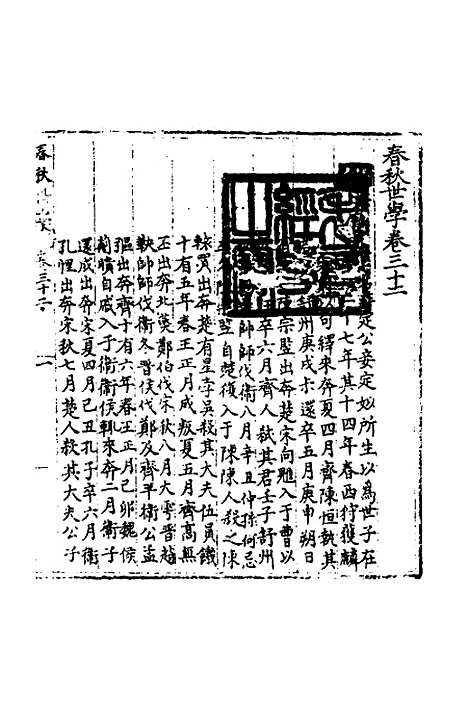 春秋世學卷三十二
定公妾定姒所生以爲世子在
十七年其十四年春西狩獲麟
句繹來奔夏四月齊陳恒執其
州庚戌卡還卒五月庚申朔日
宗豎出奔楚宋向魋入于曹以
卒六月齊人弒其君壬于舒州
帥師伐衛八月辛丑仲孫何忌
自楚復入于陳陳人殺之陳
轅買出奔楚有星孛吳殺其大夫伍員鐵
十有五年春王正月成叛夏五月齊高無
丕出奔北燕鄭伯伐宋秋八月大雩晉趙
鞅帥師伐衛冬晉侯伐鄭及齊平衛公孟
彄出奔齊十有六年春王正月己卯魏侯
蒯聵自戚入于衛衛侯輒來奔二月衛子
還成出奔宋夏四月己丑孔子卒六月衛
孔悝出奔宋秋七月楚人殺其大夫公子
春秋
卷三十二
一